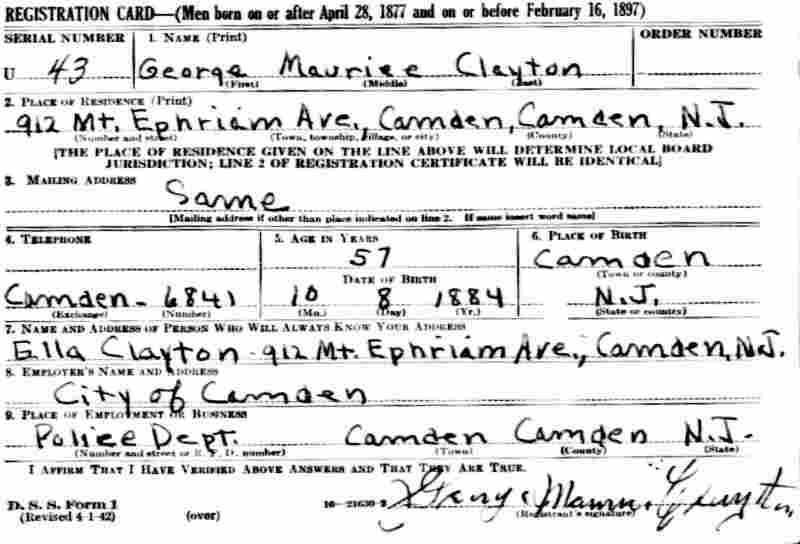 REGISTRATION CARD—(Men born on or after April 28, 1877 and on or before February 16, 1897)
SERIAL NUMBER 1. NAME (Print) ORDER NUMBER
U 43 George Maurice Clayton
(First) (Middle) (Last)
2. PLACE OF RESIDENCE (Print)
912 Mt. Ephriam Ave., Camden, Camden, N.J.
(Number and street) (Town, township, village, or city) (County) (State)
[THE PLACE OF RESIDENCE GIVEN ON THE LINE ABOVE WILL DETERMINE LOCAL BOARD
JURISDICTION; LINE 2 OF REGISTRATION CERTIFICATE WILL BE IDENTICAL]
3. MAILING ADDRESS
Same
[Mailing address if other than place indicated on line 2. If same insert word same]
4. TELEPHONE 5. AGE IN YEARS 6. PLACE OF BIRTH
57 Camden
DATE OF BIRTH (Town or county)
Camden - 6841 10 8 1884 N.J.
(Exchange) (Number) (Mo.) (Day) (Yr.) (State or country)
7. NAME AND ADDRESS OF PERSON WHO WILL ALWAYS KNOW YOUR ADDRESS
Ella Clayton - 912 Mt. Ephriam Ave., Camden, N.J.
8. EMPLOYER'S NAME AND ADDRESS
City of Camden
9. PLACE OF EMPLOYMENT OR BUSINESS
Police Dept. Camden Camden N.J.
(Number and street or R. F. D. number) (Town) (County) (State)
I AFFIRM THAT I HAVE VERIFIED ABOVE ANSWERS AND THAT THEY ARE TRUE.
D. S. S. Form 1 16—21630-2 George Maurice Clayton
(Revised 4-1-42) (over) (Registrant's signature)